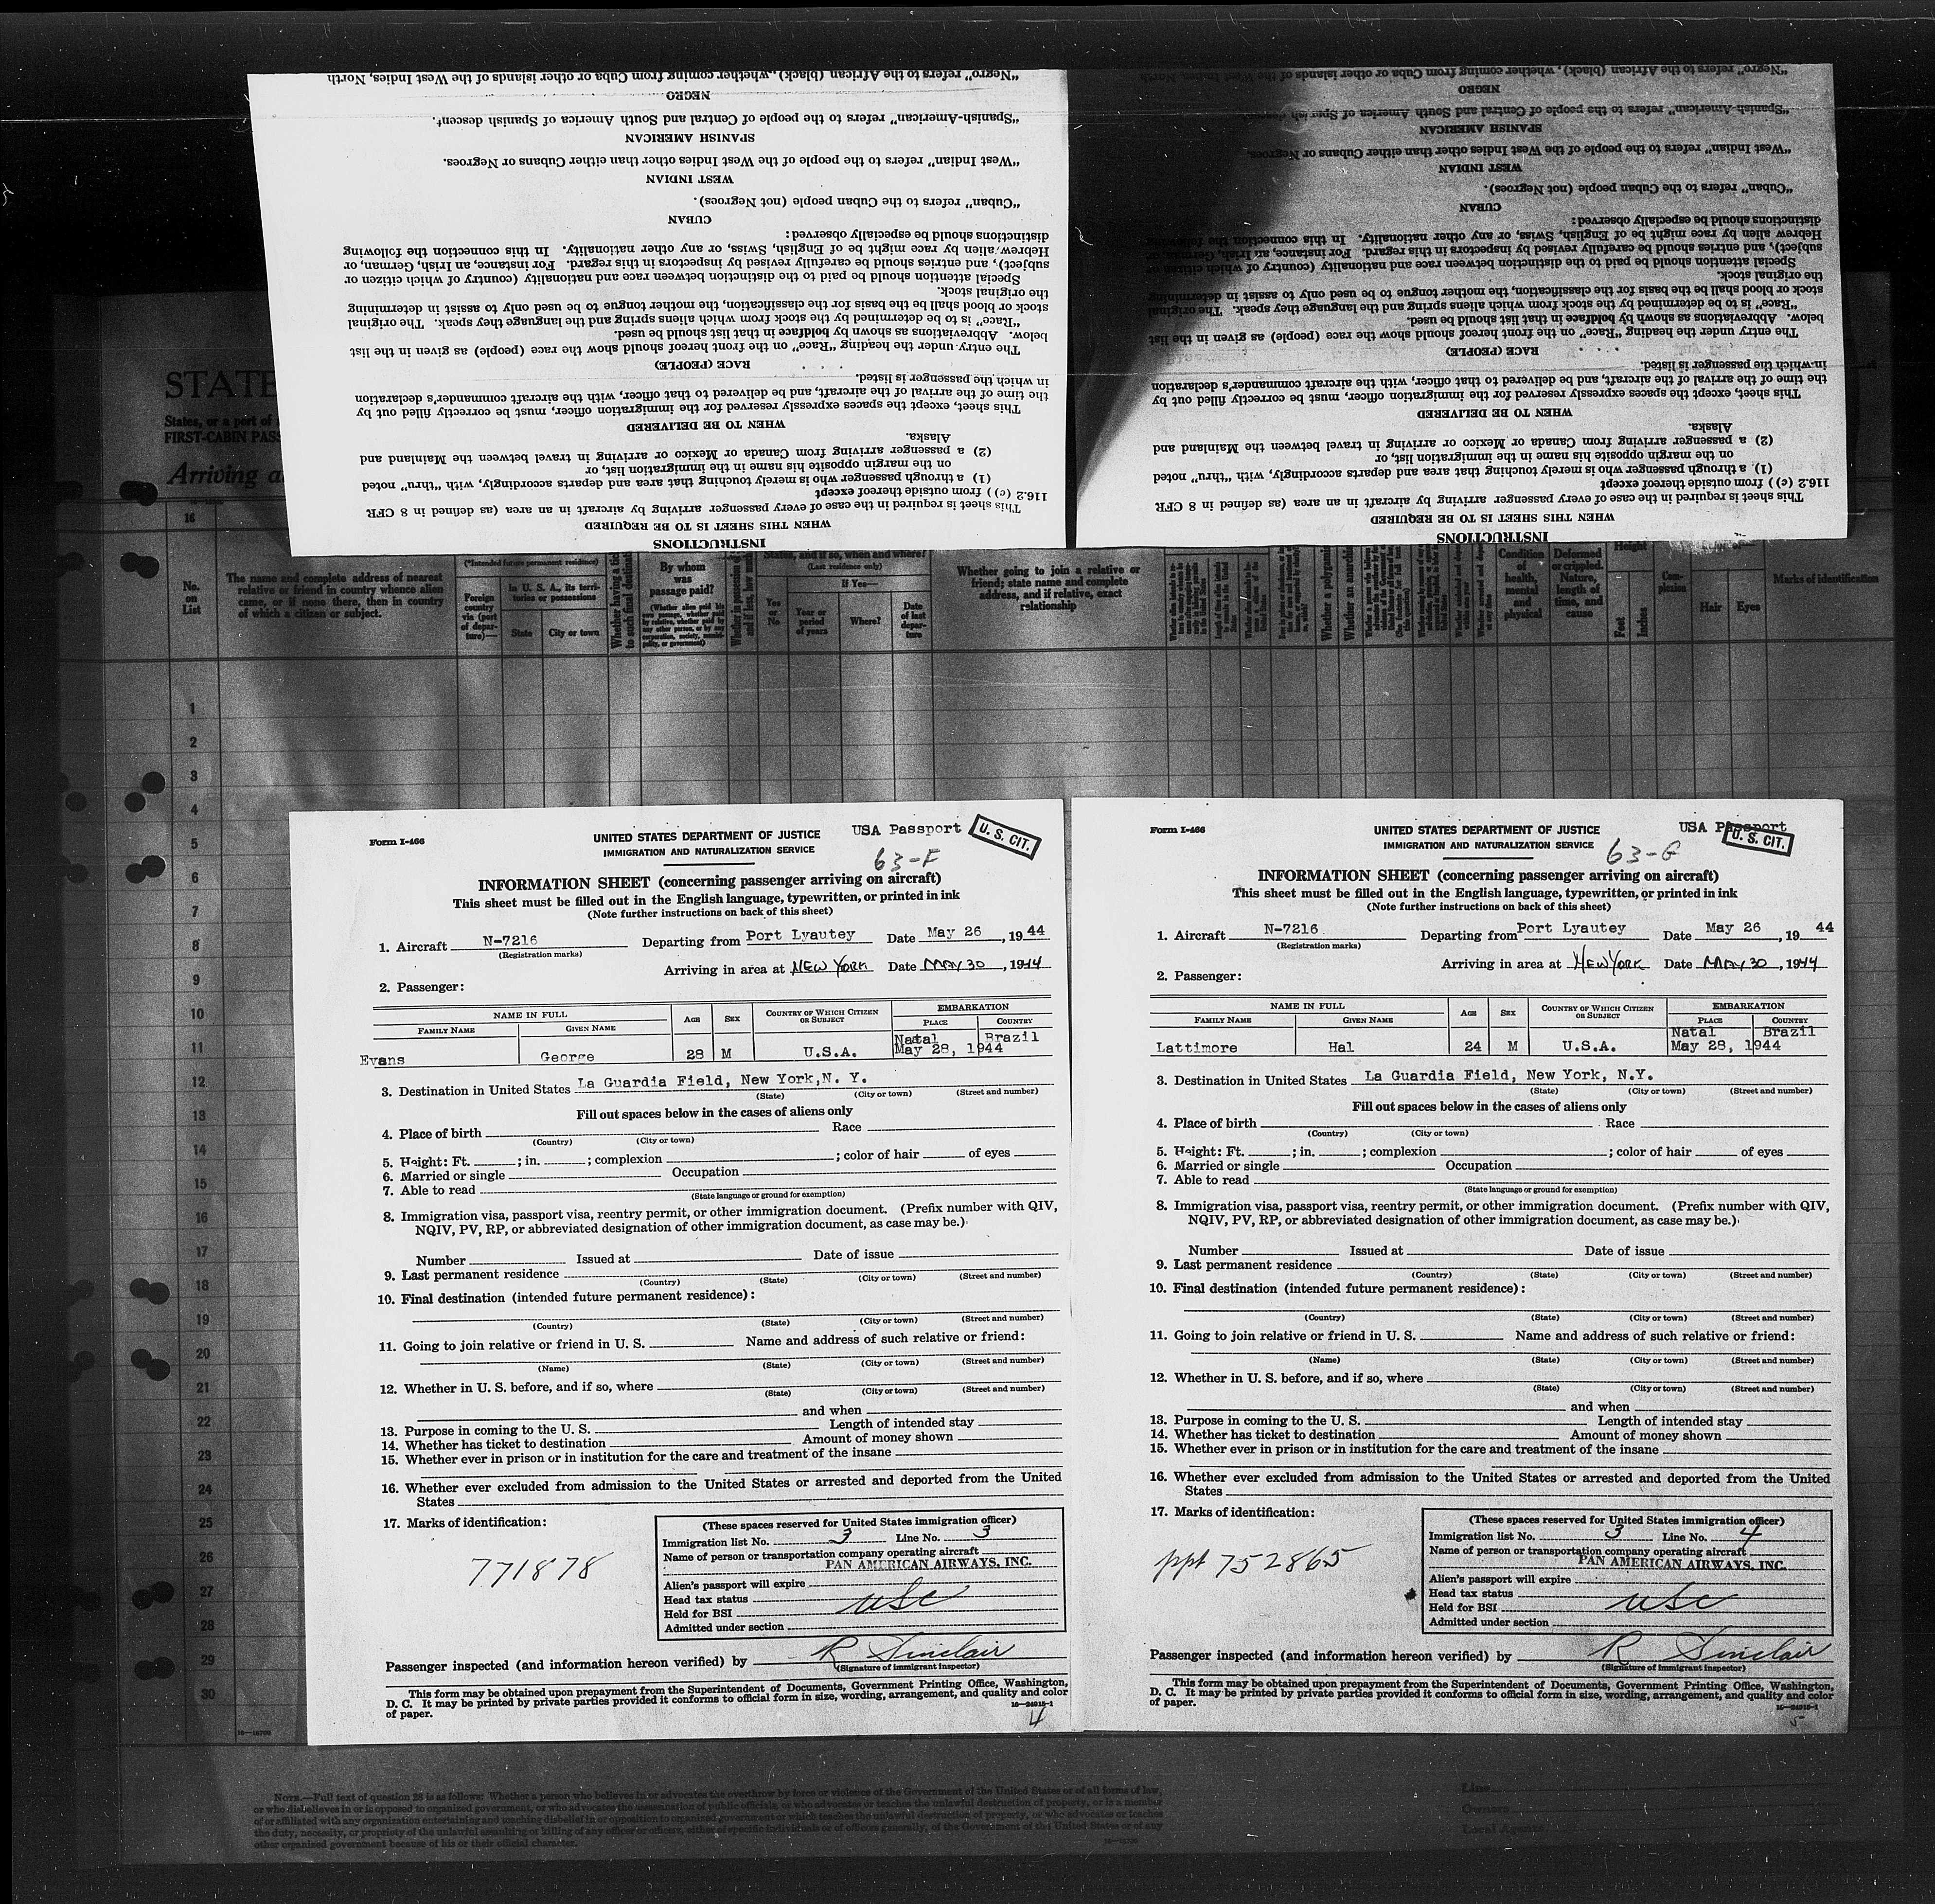 "Negro" refers to the African (black), whether coming from Cuba or other islands of the West Indies, North
NEGRO
"Spanish-American" refers to the people of Central and South America of Spanish descent.
SPANISH AMERICAN
"West Indian" refers to the people of the West Indies other than either Cubans or Negroes.
WEST INDIAN
"Cuban" refers to the Cuban people (not Negroes).
CUBAN
distinctions should be especially observed:
Hebrew alien by race might be of English, Swiss, or any other nationality. In this connection the following
subject), and entries should be carefully revised by inspectors in this regard. For instance, an Irish, German, or
Special attention should be paid to the distinction between race and nationality (country of which citizen or
the original stock.
stock or blood shall be the basis for the classification, the mother tongue to be used only to assist in determining
"Race" is to be determined by the stock from which aliens spring and the language they speak. The original
below. Abbreviations as shown by boldface in that list should be used.
The entry under the heading "Race" on the front hereof should show the race (people) as given in the list
RACE (PEOPLE)
in which the passenger is listed.
the time of the arrival of the aircraft, and be delivered to that officer, with the aircraft commander's declaration
This sheet, except the spaces expressly reserved for the immigration officer, must be correctly filled out by
WHEN TO BE DELIVERED
Alaska.
(2) a passenger arriving from Canada or Mexico or arriving in travel between the Mainland and
on the margin opposite his name in the immigration list, or
(1) a through passenger who is merely touching that area and departs accordingly, with "thru" noted
116.2 (c)) from outside thereof except
This sheet is required in the case of every passenger arriving by aircraft in an area (as defined in 8 CFR
WHEN THIS SHEET IS TO BE REQUIRED
INSTRUCTIONS
"Negro" refers to the African (black), whether coming from Cuba or other islands of the West Indies, North
NEGRO
"Spanish-American" refers to the people of Central and South America of Spanish
SPANISH AMERICAN
"West Indian" refers to the people of the West Indies other than either Cubans or Negroes.
WEST INDIAN
"Cuban" refers to the Cuban people (not Negroes).
CUBAN
distinctions should be especially observed:
Hebrew alien by race might be of English, Swiss, or any other nationality. In this connection the following
subject), and entries should be carefully revised by inspectors in this regard. For instance, an Irish, German, or
Special attention should be paid to the distinction between race and nationality (country of which citizen or
the original stock.
stock or blood shall be the basis for the classification, the mother tongue to be used only to assist in determining
"Race" is to be determined by the stock from which aliens spring and the language they speak. The original
below. Abbreviations as shown by boldface in that list should be used.
The entry under the heading "Race" on the front hereof should show the race (people) as given in the list
RACE (PEOPLE)
in which the passenger is listed.
the time of the arrival of the aircraft, and be delivered to that officer, with the aircraft commander's declaration
This sheet, except the spaces expressly reserved for the immigration officer, must be correctly filled out by
WHEN TO BE DELIVERED
Alaska.
(2) a passenger arriving from Canada or Mexico or arriving in travel between the Mainland and
on the margin opposite his name in the immigration list, or
(1) a through passenger who is merely touching that area and departs accordingly, with "thru" noted
116.2 (c)) from outside thereof except
This sheet is required in the case of every passenger arriving by aircraft in an area (as defined in 8 CFR
WHEN THIS SHEET IS TO BE REQUIRED
INSTRUCTIONS
STATE
States, or a part of
FIRST-CABIN PASS
Arriving a
16
No. on List
The name and complete address of nearest
relative or friend in country whence alien
came, or if none there, then in country
of which a citizen or subject.
(*Intended future permanent residence)
Foreign country via (port of departure)—
In U. S. A., its territories or possessions
State City or town
By whom was passage paid?
(Last residence only)
Yes or No
If Yes—
Year or period of years
Where?
Date of last departure
Whether going to join a relative or
friend; state name and complete
address, and if relative, exact
relationship
Whether a polygamist
Whether an anarchist
Condition of health, mental and physical
Deformed or crippled. Nature, length of time, and cause
Height
Feet
Inches
Complexion
Hair Eyes
Marks of identification
1
2
3
4
5
6
7
8
9
10
11
12
13
14
15
16
17
18
19
20
21
22
23
24
25
26
27
28
29
30
16—16700
Form I-466
UNITED STATES DEPARTMENT OF JUSTICE
USA Passport
U. S. CIT.
IMMIGRATION AND NATURALIZATION SERVICE
63-F
INFORMATION SHEET (concerning passenger arriving on aircraft)
This sheet must be filled out in the English language, typewritten, or printed in ink
(Note further instructions on back of this sheet)
1. Aircraft N-7216 Departing from Port Lyautey Date May 26, 1944
(Registration marks)
Arriving in area at NEW YORK Date MAY 30, 1944
2. Passenger:
NAME IN FULL AGE SEX COUNTRY OF WHICH CITIZEN OR SUBJECT EMBARKATION
FAMILY NAME GIVEN NAME PLACE COUNTRY
Natal Brazil
Evans George 28 M U.S.A. May 28, 1944
3. Destination in United States La Guardia Field, New York, N. Y.
(State) (City or town) (Street and number)
Fill out spaces below in the cases of aliens only
4. Place of birth Race
(Country) (City or town)
5. Height: Ft. ; in. ; complexion ; color of hair of eyes
6. Married or single Occupation
7. Able to read
(State language or ground for exemption)
8. Immigration visa, passport visa, reentry permit, or other immigration document. (Prefix number with QIV,
NQIV, PV, RP, or abbreviated designation of other immigration document, as case may be.)
Number Issued at Date of issue
9. Last permanent residence
(Country) (State) (City or town) (Street and number)
10. Final destination (intended future permanent residence):
(Country) (State) (City or town) (Street and number)
11. Going to join relative or friend in U. S. Name and address of such relative or friend:
(Name) (State) (City or town) (Street and number)
12. Whether in U. S. before, and if so, where
(State) (City or town) (Street and number)
and when
13. Purpose in coming to the U. S. Length of intended stay
14. Whether has ticket to destination Amount of money shown
15. Whether ever in prison or in institution for the care and treatment of the insane
16. Whether ever excluded from admission to the United States or arrested and deported from the United
States
17. Marks of identification:
771878
(These spaces reserved for United States immigration officer)
Immigration list No. 3 Line No. 3
Name of person or transportation company operating aircraft
PAN AMERICAN AIRWAYS, INC.
Alien's passport will expire
Head tax status USC
Held for BSI
Admitted under section
Passenger inspected (and information hereon verified) by R Sinclair
(Signature of immigrant inspector)
This form may be obtained upon prepayment from the Superintendent of Documents, Government Printing Office, Washington,
D. C. It may be printed by private parties provided it conforms to official form in size, wording, arrangement, and quality and color
of paper.
16—24915-1
4
Form I-466
UNITED STATES DEPARTMENT OF JUSTICE
USA Passport
U. S. CIT.
IMMIGRATION AND NATURALIZATION SERVICE
63-G
INFORMATION SHEET (concerning passenger arriving on aircraft)
This sheet must be filled out in the English language, typewritten, or printed in ink
(Note further instructions on back of this sheet)
1. Aircraft N-7216 Departing from Port Lyautey Date May 26, 1944
(Registration marks)
Arriving in area at NEW YORK Date MAY 30, 1944
2. Passenger:
NAME IN FULL AGE SEX COUNTRY OF WHICH CITIZEN OR SUBJECT EMBARKATION
FAMILY NAME GIVEN NAME PLACE COUNTRY
Natal Brazil
Lattimore Hal 24 M U.S.A. May 28, 1944
3. Destination in United States La Guardia Field, New York, N.Y.
(State) (City or town) (Street and number)
Fill out spaces below in the cases of aliens only
4. Place of birth Race
(Country) (City or town)
5. Height: Ft. ; in. ; complexion ; color of hair of eyes
6. Married or single Occupation
7. Able to read
(State language or ground for exemption)
8. Immigration visa, passport visa, reentry permit, or other immigration document. (Prefix number with QIV,
NQIV, PV, RP, or abbreviated designation of other immigration document, as case may be.)
Number Issued at Date of issue
9. Last permanent residence
(Country) (State) (City or town) (Street and number)
10. Final destination (intended future permanent residence):
(Country) (State) (City or town) (Street and number)
11. Going to join relative or friend in U. S. Name and address of such relative or friend:
(Name) (State) (City or town) (Street and number)
12. Whether in U. S. before, and if so, where
(State) (City or town) (Street and number)
and when
13. Purpose in coming to the U. S. Length of intended stay
14. Whether has ticket to destination Amount of money shown
15. Whether ever in prison or in institution for the care and treatment of the insane
16. Whether ever excluded from admission to the United States or arrested and deported from the United
States
17. Marks of identification:
ppt 752865
(These spaces reserved for United States immigration officer)
Immigration list No. 3 Line No. 4
Name of person or transportation company operating aircraft
PAN AMERICAN AIRWAYS, INC.
Alien's passport will expire
Head tax status USC
Held for BSI
Admitted under section
Passenger inspected (and information hereon verified) by R Sinclair
(Signature of immigrant inspector)
This form may be obtained upon prepayment from the Superintendent of Documents, Government Printing Office, Washington,
D. C. It may be printed by private parties provided it conforms to official form in size, wording, arrangement, and quality and color
of paper.
16—24915-1
5
NOTE.—Full text of question 28 is as follows: Whether a person who believes in or advocates the overthrow by force or violence of the Government of the United States or of all forms of law,
or who disbelieves in or is opposed to organized government, or who advocates the assassination of public officials, or who advocates or teaches the unlawful destruction of property, or is a member
of or affiliated with any organization entertaining and teaching disbelief in or opposition to organized government or which teaches the unlawful destruction of property, or who advocates or teaches
the duty, necessity, or propriety of the unlawful assaulting or killing of any officer or officers, either of specific individuals or of officers generally, of the Government of the United States or of any
other organized government because of his or their official character.
16—16700
Line
Owners
Local Agents